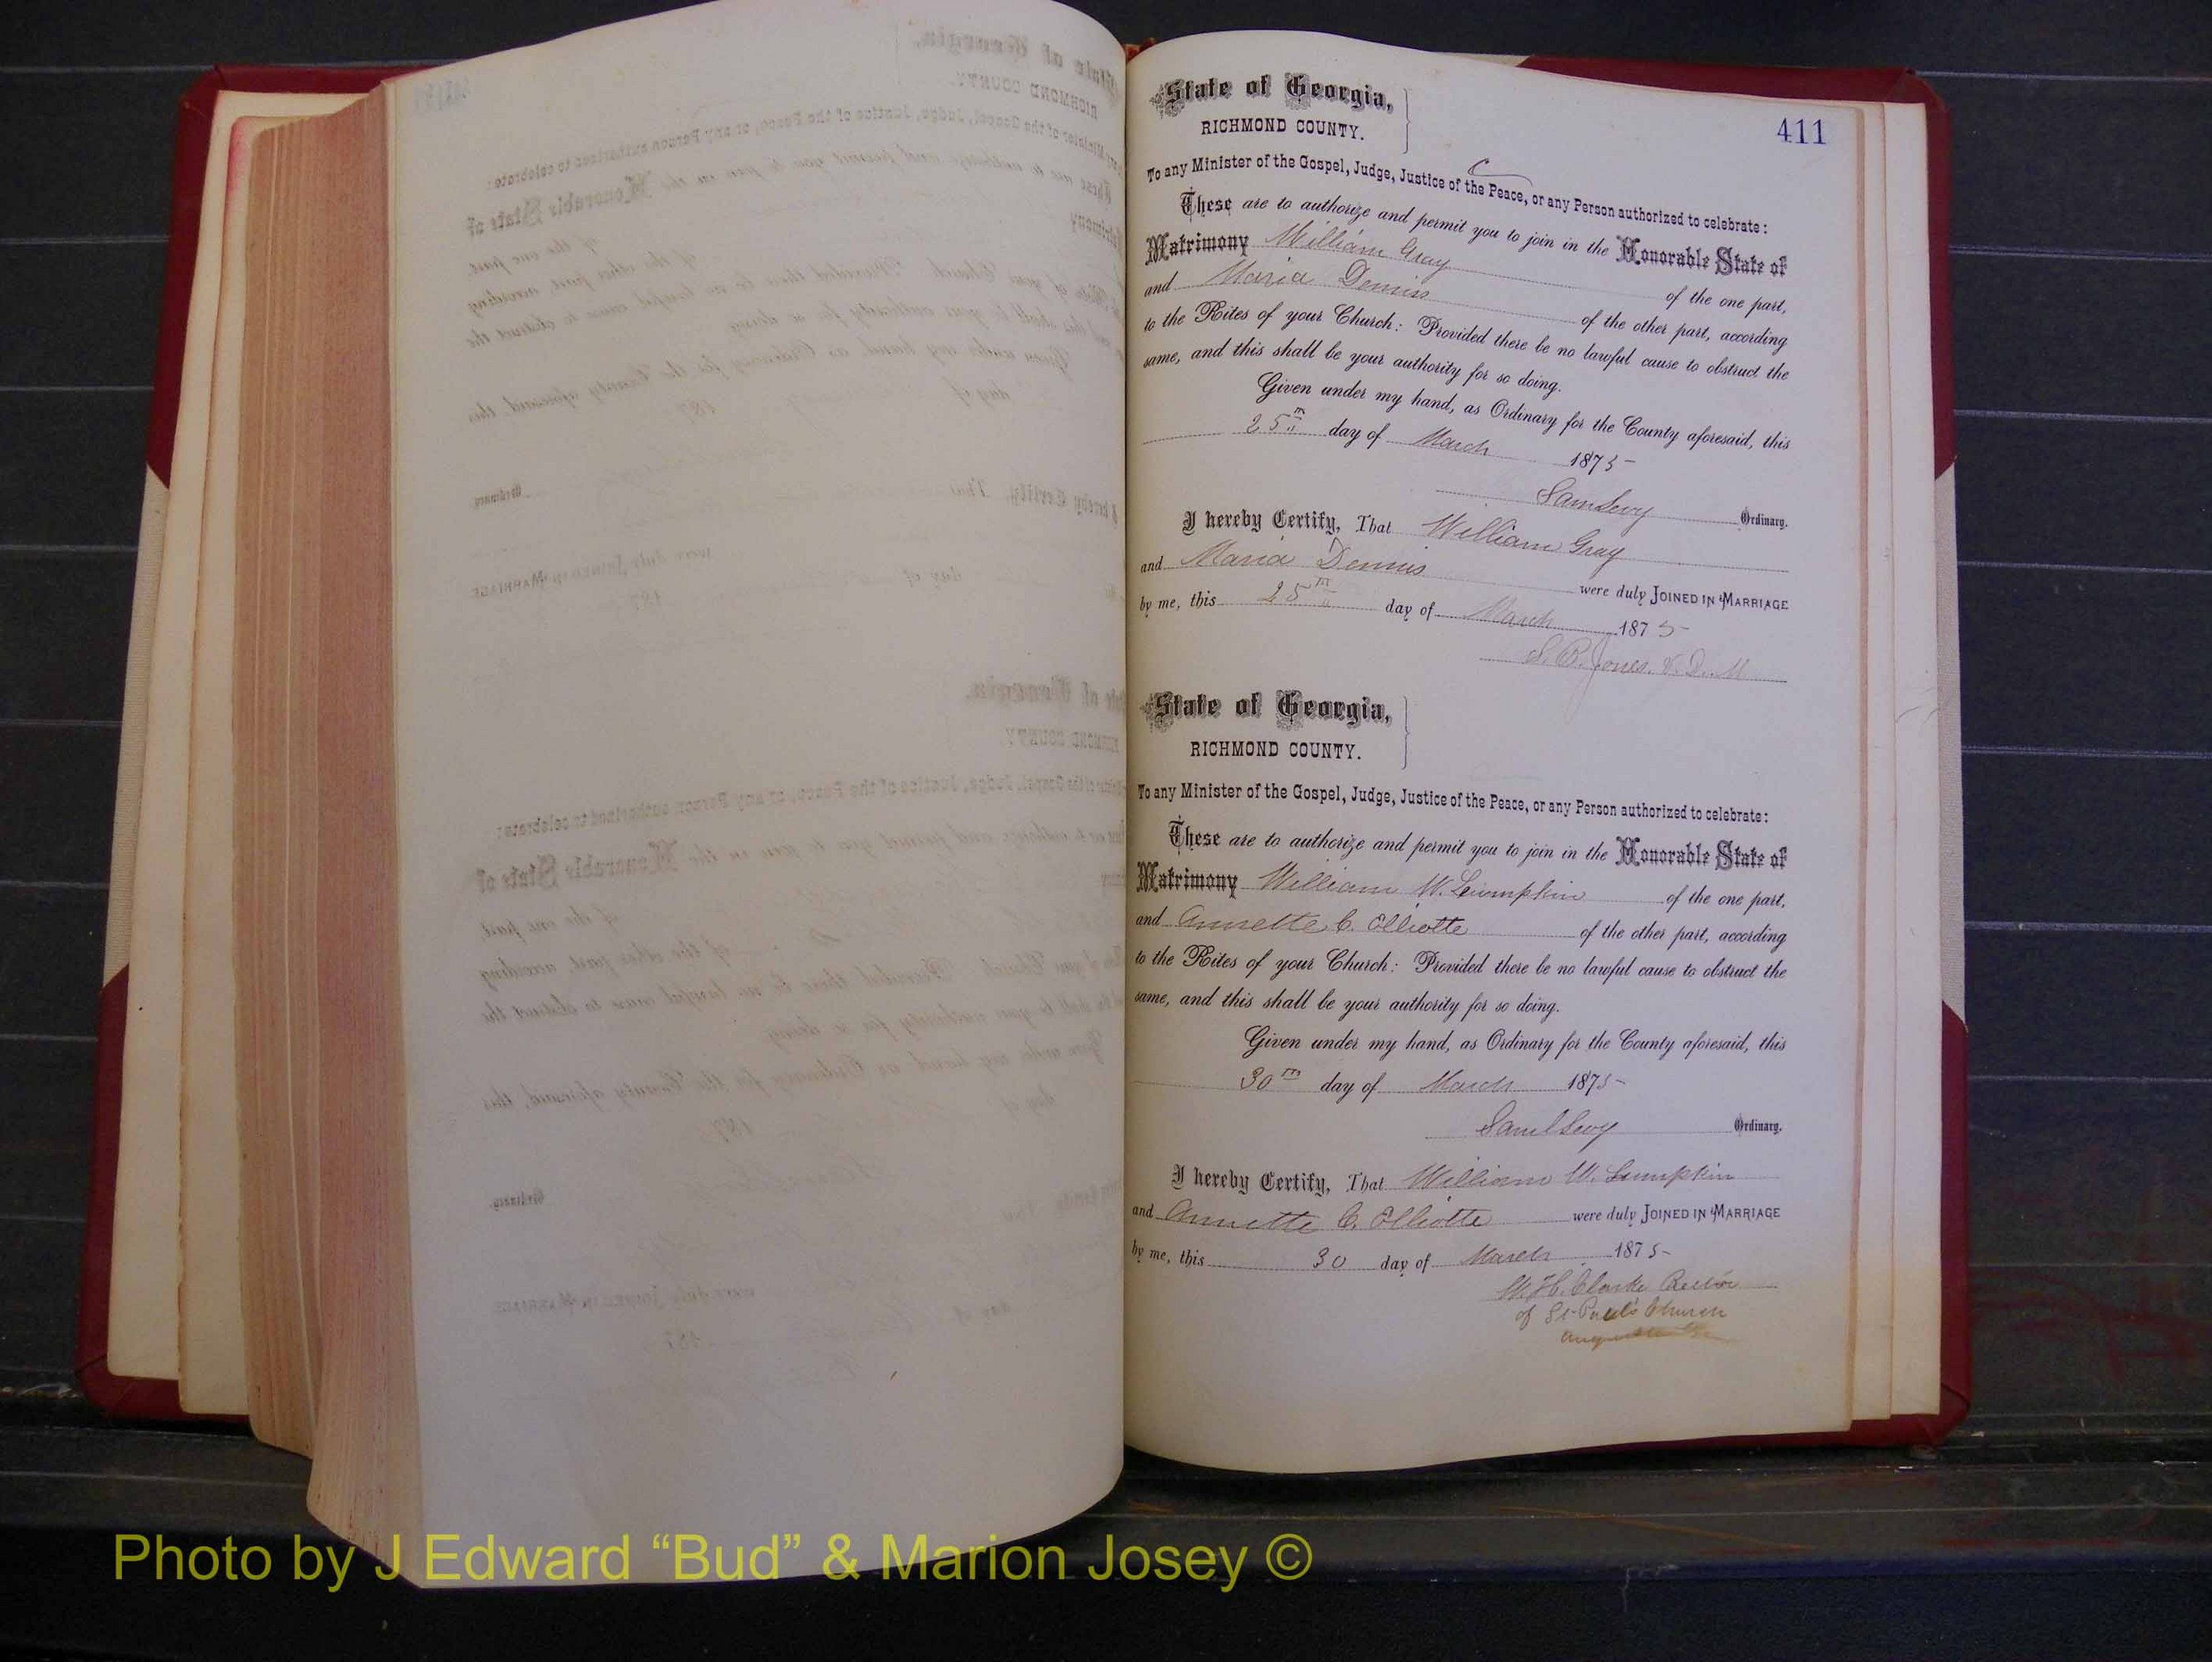 411
State of Georgia,
RICHMOND COUNTY.
C
To any Minister of the Gospel, Judge, Justice of the Peace, or any Person authorized to celebrate:
These are to authorize and permit you to join in the Honorable State of
Matrimony William Gray of the one part,
and Maria Dennis of the other part, according
to the Rites of your Church: Provided there be no lawful cause to obstruct the
same, and this shall be your authority for so doing.
Given under my hand, as Ordinary for the County aforesaid, this
25th day of March 1875
Sam Levy Ordinary.
I hereby Certify, That William Gray
and Maria Dennis were duly JOINED IN MARRIAGE
by me, this 25th day of March 1875
S. B. Jones. V. D. M
State of Georgia,
RICHMOND COUNTY.
To any Minister of the Gospel, Judge, Justice of the Peace, or any Person authorized to celebrate:
These are to authorize and permit you to join in the Honorable State of
Matrimony William W. Lumpkin of the one part,
and Annette C. Elliotte of the other part, according
to the Rites of your Church: Provided there be no lawful cause to obstruct the
same, and this shall be your authority for so doing.
Given under my hand, as Ordinary for the County aforesaid, this
30th day of March 1875
Saml Levy Ordinary.
I hereby Certify, That William W. Lumpkin
and Annette C. Elliotte were duly JOINED IN MARRIAGE
by me, this 30 day of March 1875
W. H. Clarke Rector
of St Paul's Church
Augusta Ga
Photo by J Edward “Bud” & Marion Josey ©